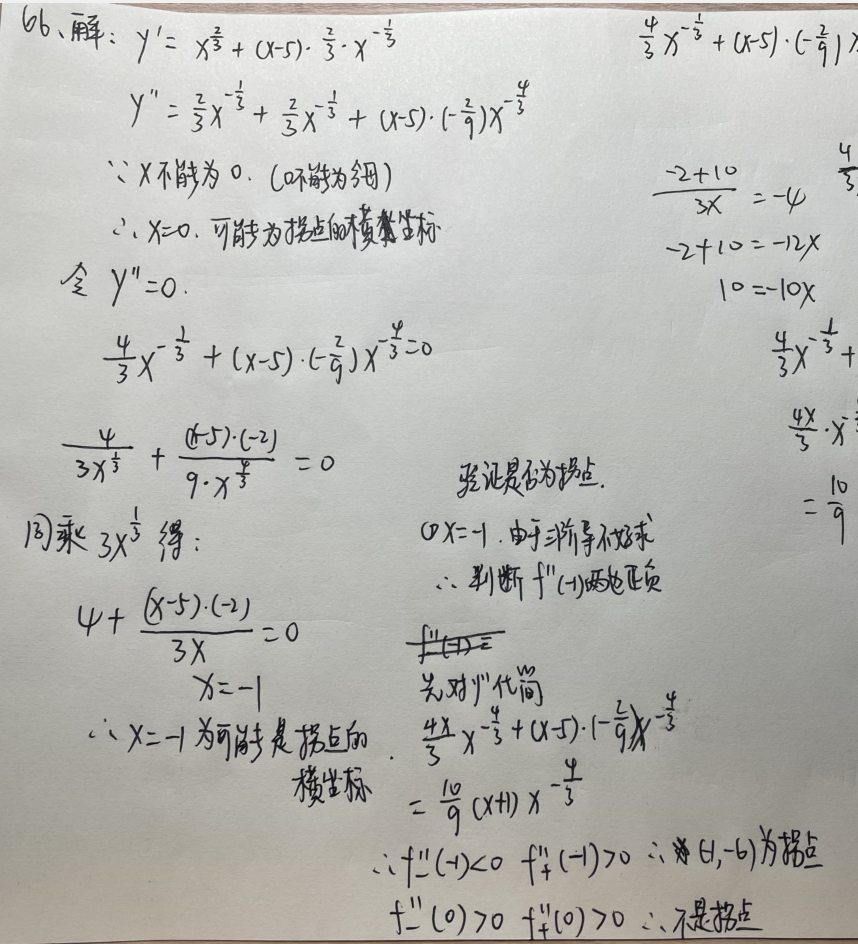 66、解: y' = x^{2/3} + (x-5)·2/3·x^{-1/3}
y'' = 2/3 x^{-1/3} + 2/3 x^{-1/3} + (x-5)·(-2/9)x^{-4/3}
∵ x不能为0. (0不能为分母)
∴ x=0. 可能为拐点的横坐标
令 y''=0.
4/3 x^{-1/3} + (x-5)·(-2/9)x^{-4/3}=0
4/(3x^{1/3}) + (x-5)·(-2)/(9·x^{4/3}) = 0
同乘 3x^{1/3} 得:
4 + (x-5)·(-2)/(3x) = 0
x=-1
∴ x=-1 为可能是拐点的
横坐标
4/3 x^{-1/3} + (x-5)·(-2/9)
(-2+10)/(3x) = -4
4/3
-2+10 = -12x
10 = -10x
4/3 x^{-1/3} +
4x/3 · x
= 10/9
验证是否为拐点.
① x=-1. 由于三阶导不好求
∴ 判断 f''(-1)两边正负
先对y''化简
4x/3 x^{-4/3} + (x-5)·(-2/9)x^{-4/3}
= 10/9 (x+1) x^{-4/3}
∴ f''₋(-1)<0 f''₊(-1)>0 ∴ (-1,-6)为拐点
f''₋(0)>0 f''₊(0)>0 ∴ 不是拐点